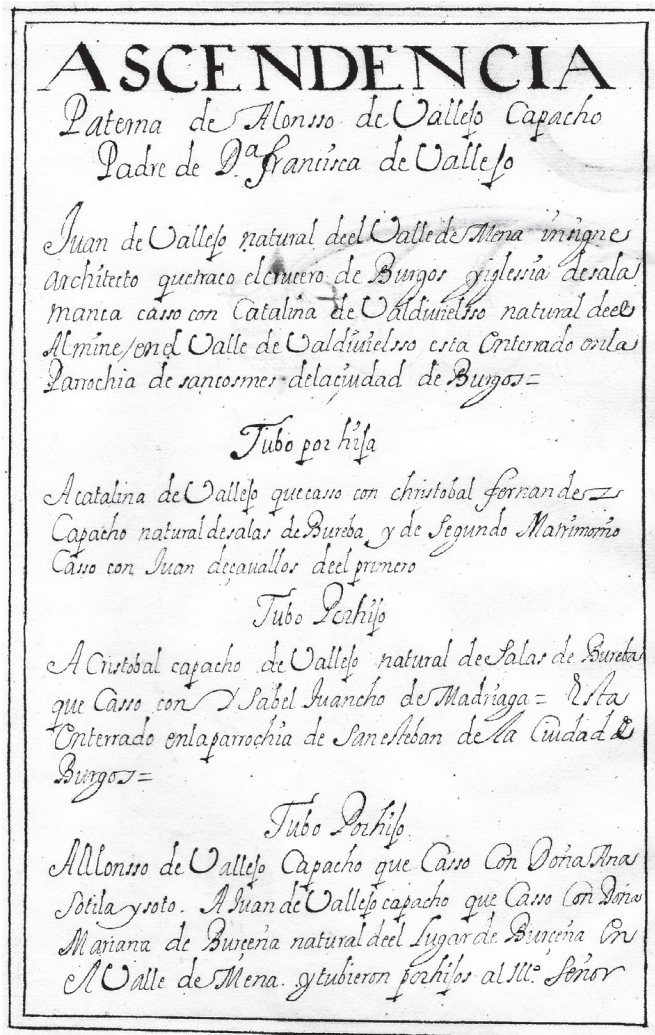 ASCENDENCIA
Paterna de Alonsso de Vallejo Capacho
Padre de D.ª francisca de Vallejo
Juan de Vallejo natural deel Valle de Mena insigne
Architecto que traço el crucero de Burgos y iglessia de sala
manca casso con Catalina de Valdivielsso natural deel
Almine/en el Valle de Valdivielsso esta Enterrado en la
Parrochia de san cosmes de la çiudad de Burgos=
Tubo por hija
A catalina de Vallejo que casso con christobal fernandez
Capacho natural de salas de Bureba y de Segundo Matrimonio
Casso con Juan de çavallos deel primero
Tubo Por hijo
A Cristobal capacho de Vallejo natural de Salas de Bureba
que Casso con Ysabel Juancho de Madriaga= Esta
Enterrado en la parrochia de San esteban de la Ciudad de
Burgos=
Tubo Por hijo
A Allonsso de Vallejo Capacho que Casso Con Doña Ana
Sotila y soto. A Juan de Vallejo capacho que Casso Con Doña
Mariana de Burceña natural deel Lugar de Burceña En
el Valle de Mena. y tubieron por hijos al Ill.º Señor